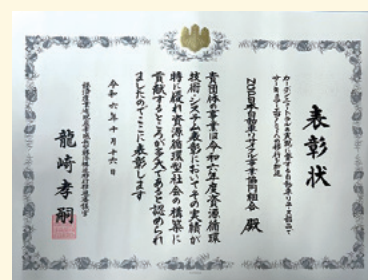 表彰状
カーボンニュートラル実現に資する自動車リユース部品で
NGP日本自動車リサイクル事業協同組合 殿
貴団体の事業は令和六年度資源循環
技術・システム表彰においてその実績が
特に優れ資源循環型社会の構築に
貢献するところが多大であると認められ
ましたのでここに表彰します
令和六年十月十六日
龍崎孝嗣